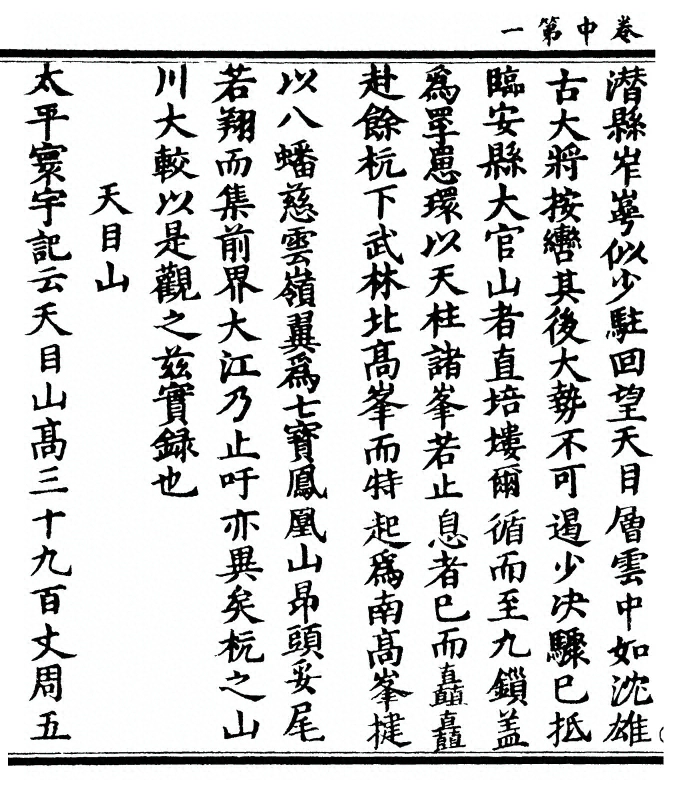 卷中第一
潛縣岝崿似少駐回望天目層雲中如沈雄
古大將按轡其後大勢不可遏少决驟已抵
臨安縣大官山者直培塿爾循而至九鎖盖
爲罩罳環以天柱諸峯若止息者已而矗矗
赴餘杭下武林北高峯而特起爲南高峯揵
以八蟠慈雲嶺翼爲七寳鳳凰山昻頭妥尾
若翔而集前界大江乃止吁亦異矣杭之山
川大較以是觀之兹實録也
天目山
太平寰宇記云天目山高三十九百丈周五